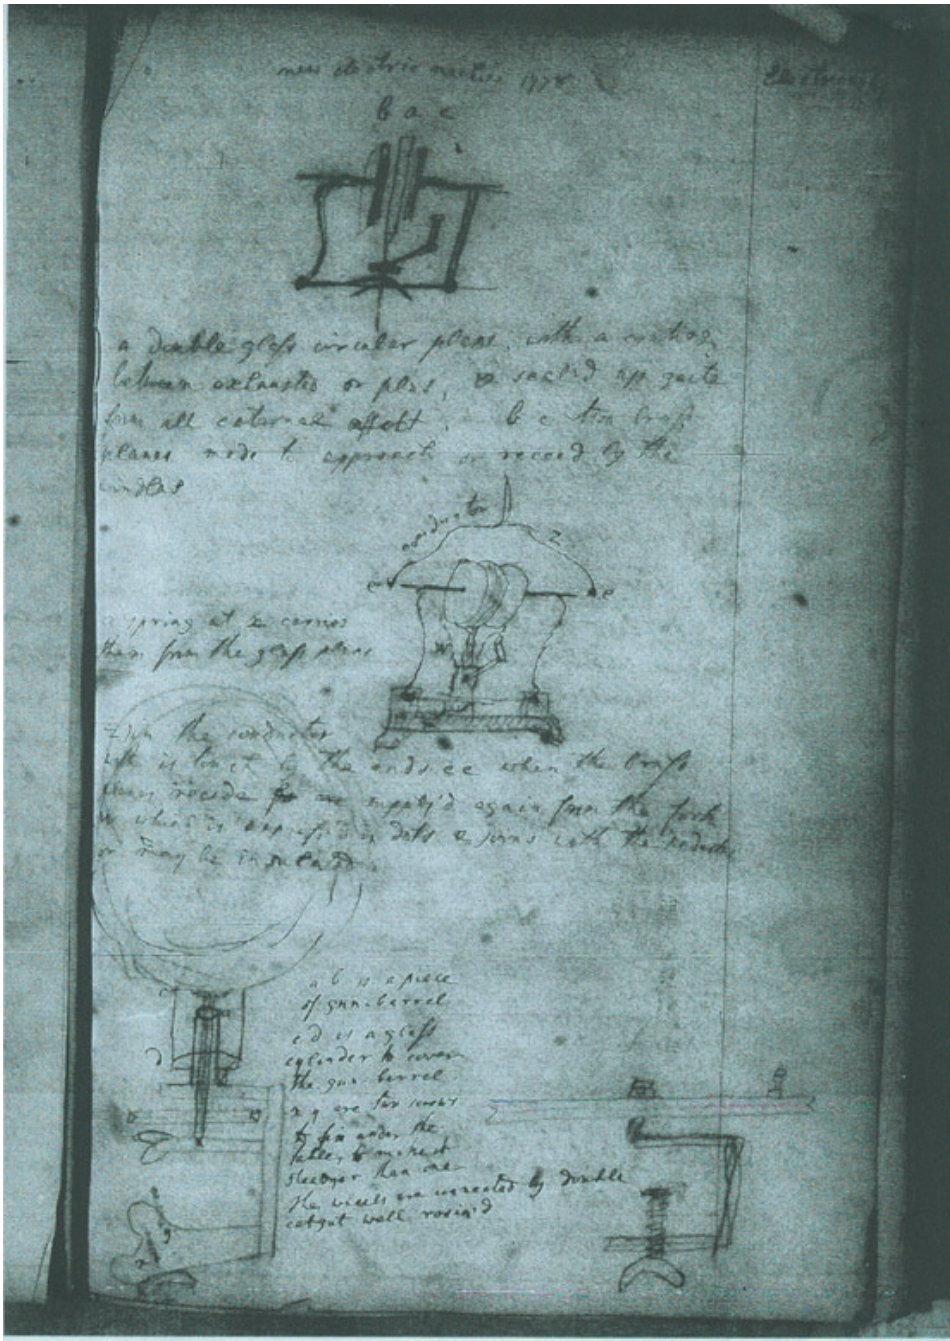 new electric machine 1778
Electricity
b a c
a double glass circular plane, with a coating
between exhausted or plus, & sealed up quite
from all external effect. b c two brass
planes made to approach or receed by the
conductor
z
e e
a spring at x carries
them from the glass plane
the conductor
is touch by the ends ee when the brass
planes recede are supply'd again from the fork
which is express'd in dots & joins with the
or may be insulated.
a b is a piece
of gun-barrel
c d is a glass
cylinder to cover
the gun-barrel
x y are two screws
to fix under the
table, to make it
steadyer than one
the wheels are connected by double
catgut well rosin'd
c
D